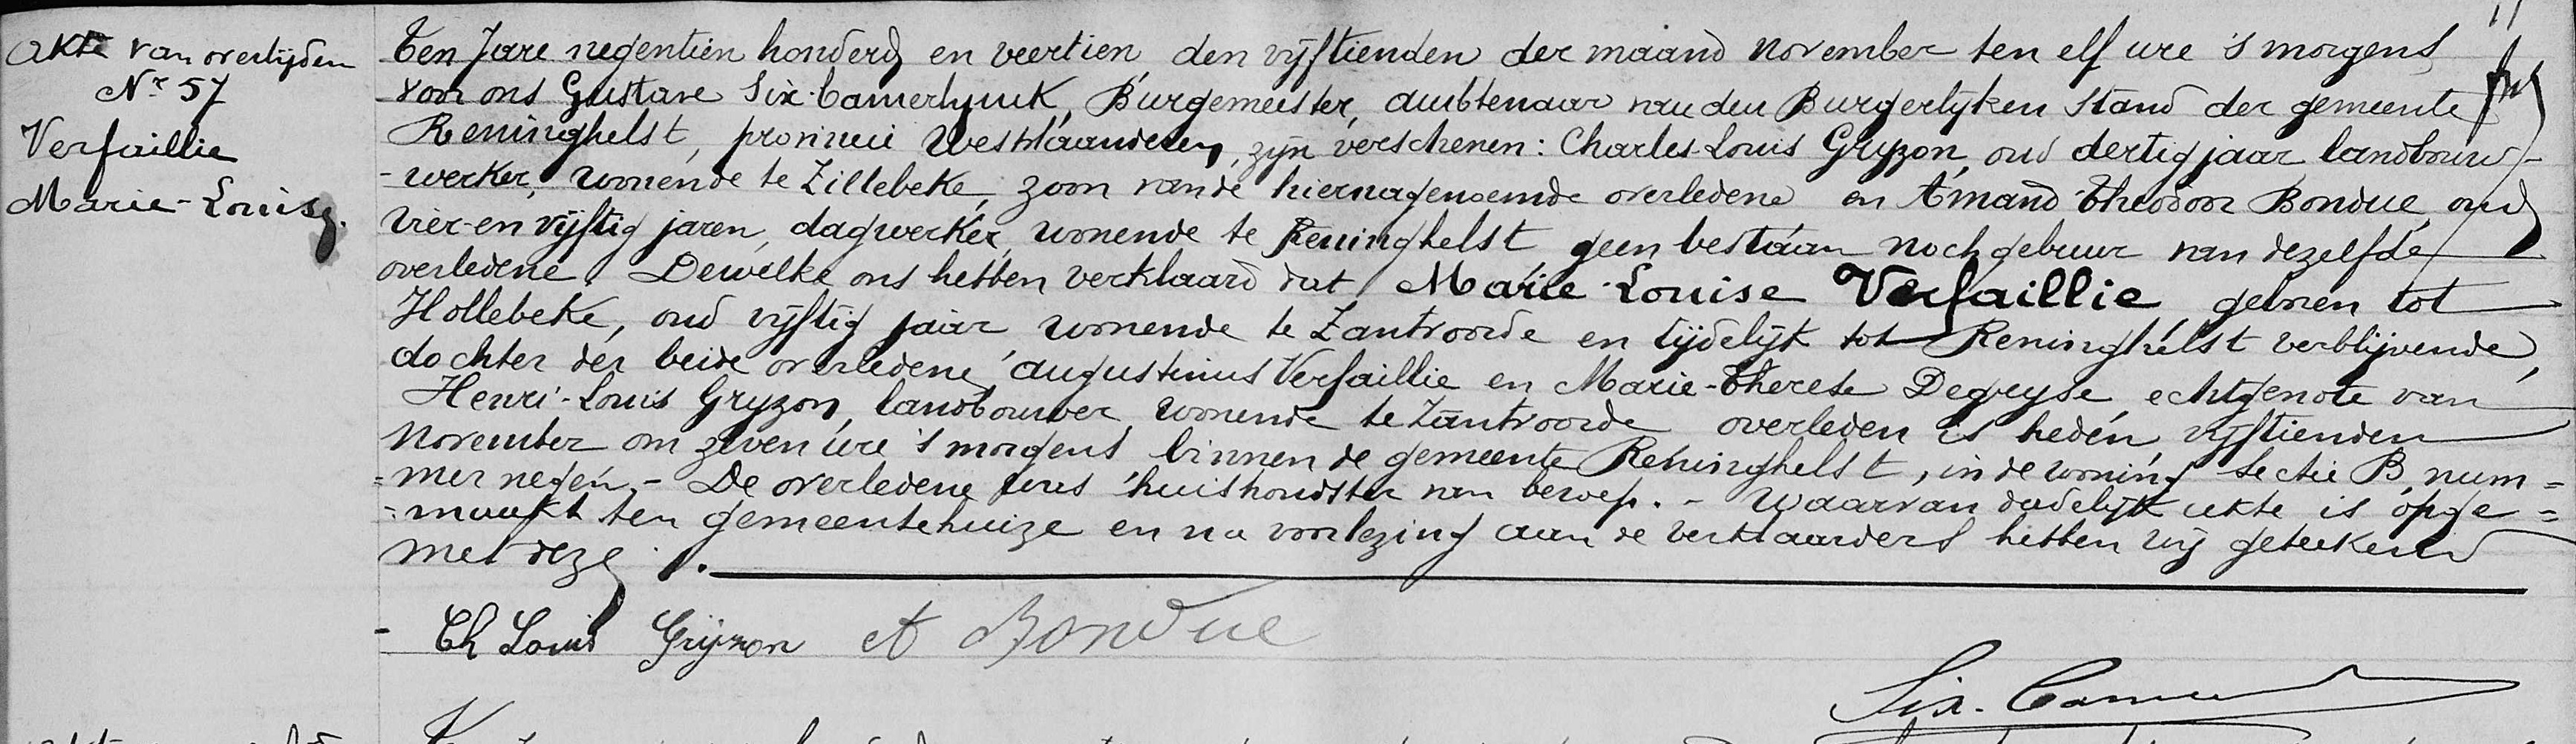 Akte van overlijden
Nr 57
Verfaillie
Marie-Louise.
Ten Jare negentien honderd en veertien, den vijftienden der maand November ten elf ure 's morgens
voor ons Gustave Six-Camerlynck, Burgemeester, ambtenaar van den Burgerlyken Stand der gemeente
Reninghelst, provincie Westvlaanderen, zyn verschenen: Charles-Louis Gryzon, oud dertig jaar landbouw-
-werker, wonende te Zillebeke, zoon van de hiernagenoemde overledene en Amand-Theodoor Bondue, oud
vier-en vijftig jaren, dagwerker, wonende te Reninghelst, geen bestaan noch gebuur van dezelfde
overledene. Dewelke ons hebben verklaard dat Marie-Louise Verfaillie, geboren tot
Hollebeke, oud vijftig jaar wonende te Zantvoorde en tijdelijk tot Reninghelst verblijvende,
dochter der beide overledene, Augustinus Verfaillie en Marie-Therese Degryse, echtgenote van
Henri-Louis Gryzon, landbouwer, wonende te Zantvoorde overleden is heden, vijftienden
November om zeven ure 's morgens, binnen de gemeente Reninghelst, in de woning Sectie B, num=
=mer negen. - De overledene was huishoudster van beroep. - Waarvan dadelijk akte is opge=
=maakt ten gemeentehuize en na voorlezing aan de verklaarders hebben wij geteekend
met deze.
- Ch Louis Grijzon et Bondue
Six-Camer